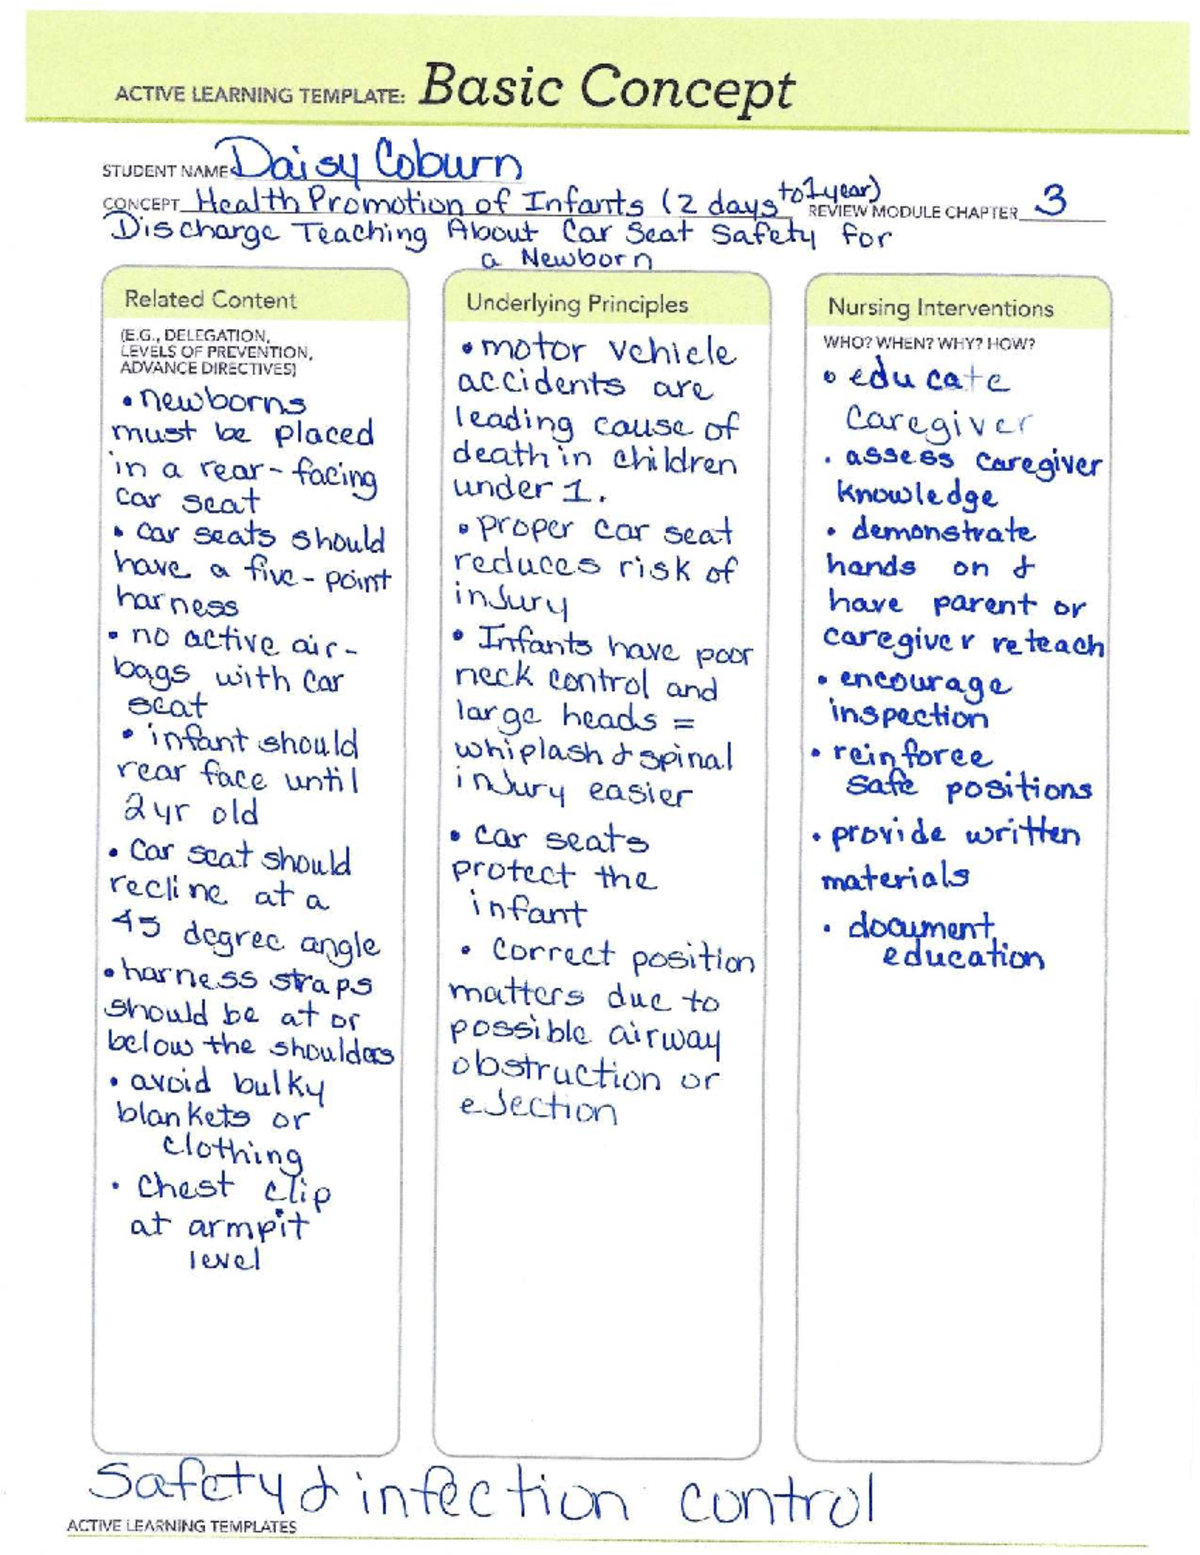 ACTIVE LEARNING TEMPLATE: Basic Concept
STUDENT NAME Daisy Coburn
CONCEPT Health Promotion of Infants (2 days to 1 year) REVIEW MODULE CHAPTER 3
Discharge Teaching About Car Seat Safety for
a Newborn
Related Content
(E.G., DELEGATION,
LEVELS OF PREVENTION,
ADVANCE DIRECTIVES)
• newborns
must be placed
in a rear-facing
car seat
• car seats should
have a five-point
harness
• no active air-
bags with car
seat
• infant should
rear face until
2yr old
• car seat should
recline at a
45 degree angle
• harness straps
should be at or
below the shoulders
• avoid bulky
blankets or
clothing
• chest clip
at armpit
level
Underlying Principles
• motor vehicle
accidents are
leading cause of
death in children
under 1.
• proper car seat
reduces risk of
injury
• Infants have poor
neck control and
large heads =
whiplash & spinal
injury easier
• car seats
protect the
infant
• correct position
matters due to
possible airway
obstruction or
ejection
Nursing Interventions
WHO? WHEN? WHY? HOW?
• educate
caregiver
• assess caregiver
knowledge
• demonstrate
hands on &
have parent or
caregiver reteach
• encourage
inspection
• reinforce
safe positions
• provide written
materials
• document
education
Safety & infection control
ACTIVE LEARNING TEMPLATES